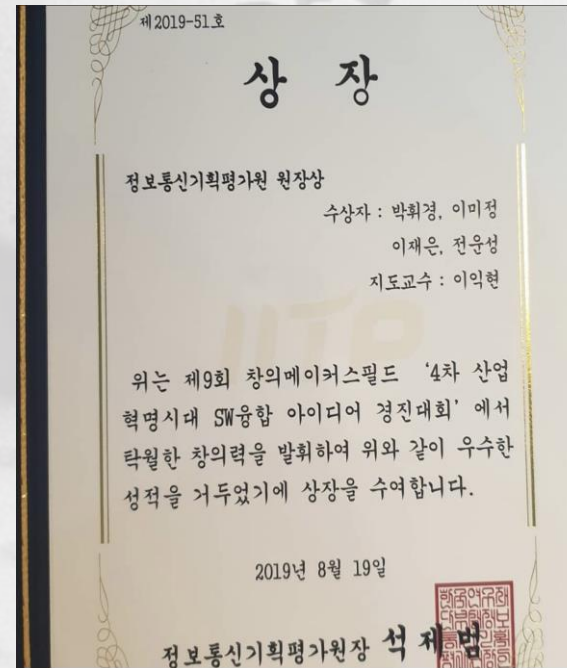 제2019-51호
상 장
정보통신기획평가원 원장상
수상자 : 박휘경, 이미정
이재은, 전운성
지도교수 : 이익현
IITP
위는 제9회 창의메이커스필드 '4차 산업
혁명시대 SW융합 아이디어 경진대회' 에서
탁월한 창의력을 발휘하여 위와 같이 우수한
성적을 거두었기에 상장을 수여합니다.
2019년 8월 19일
정보통신기획평가원장 석제범